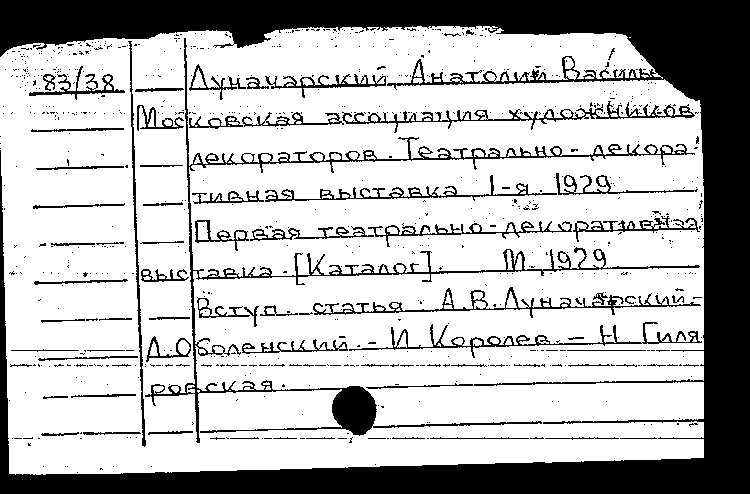 83/38 Луначарский, Анатолий Василье
Московская ассоциация художников
декораторов. Театрально-декора
тивная выставка, 1-я. 1929
Первая театрально-декоративная
выставка. [Каталог]. М., 1929
Вступ. статья: А.В.Луначарский.-
Л.Оболенский. - И. Королев. - Н. Гиля
ровская.